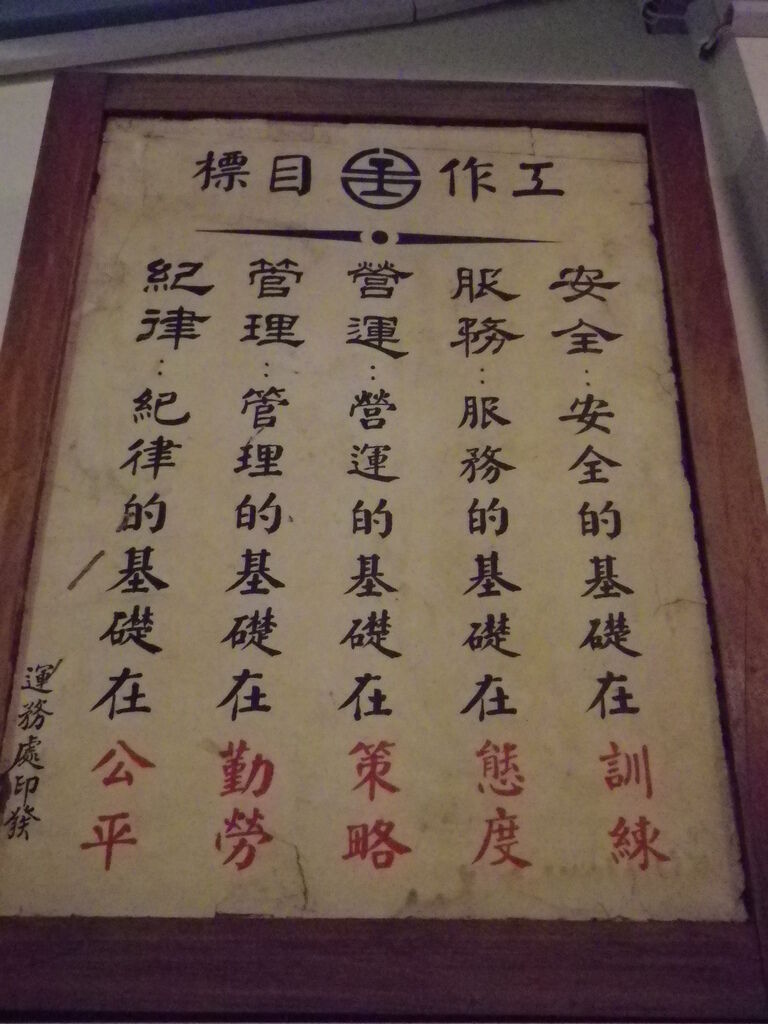 工作目標
安全：安全的基礎在訓練
服務：服務的基礎在態度
營運：營運的基礎在策略
管理：管理的基礎在勤勞
紀律：紀律的基礎在公平
運務處印發